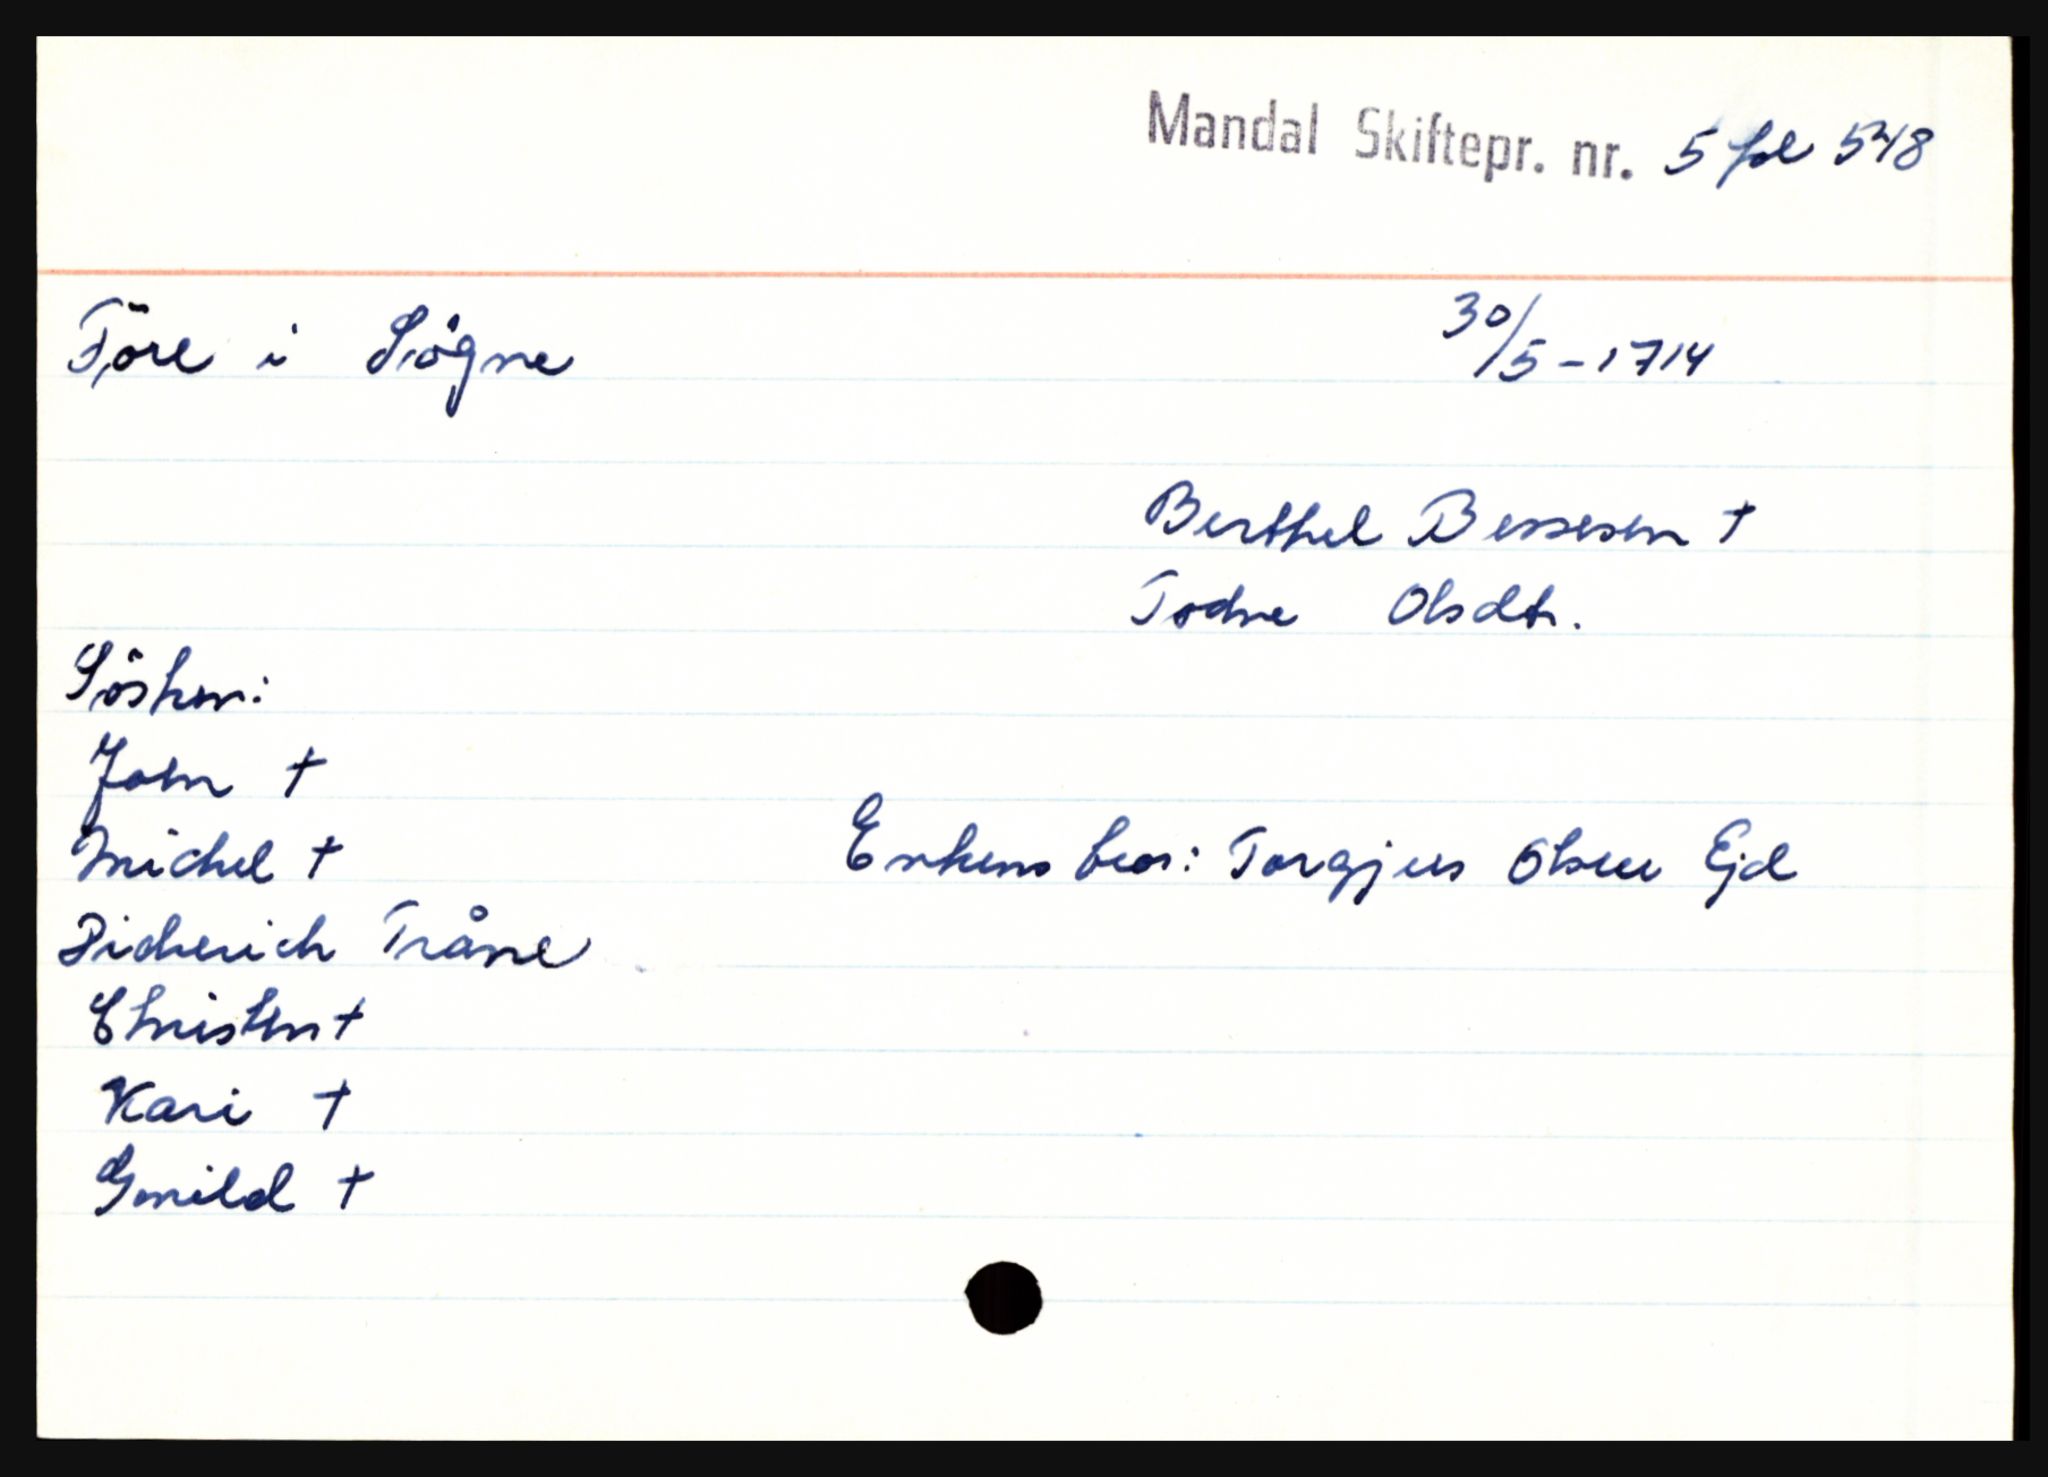 Mandal Skiftepr. nr. 5 fol 548
Töre i Sögne 30/5-1714
Berthel Bessesen †
Todne Olsdtr.
Sösken:
John †
Michel †
Enkens bror: Torgjus Olsen Ejd
Diderich Tråne
Christen †
Kari †
Gunild †